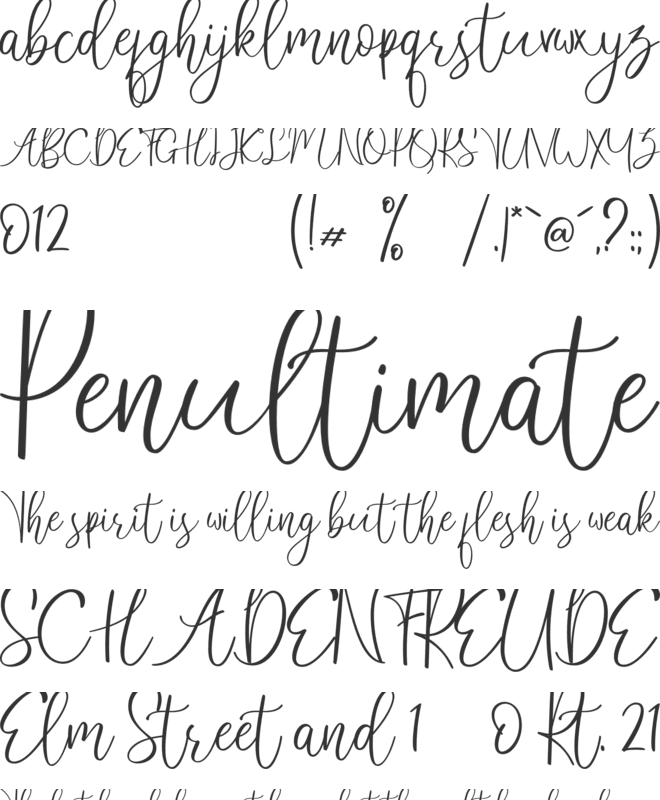 abcdefghijklmnopqrstuvwxyz
ABCDEFGHIJKLMNOPQRSTUVWXYZ
012 (!# % /.|*`@´,;?:;)
Penultimate
The spirit is willing but the flesh is weak
SCHADENFREUDE
Elm Street and 1 0 Rt. 21